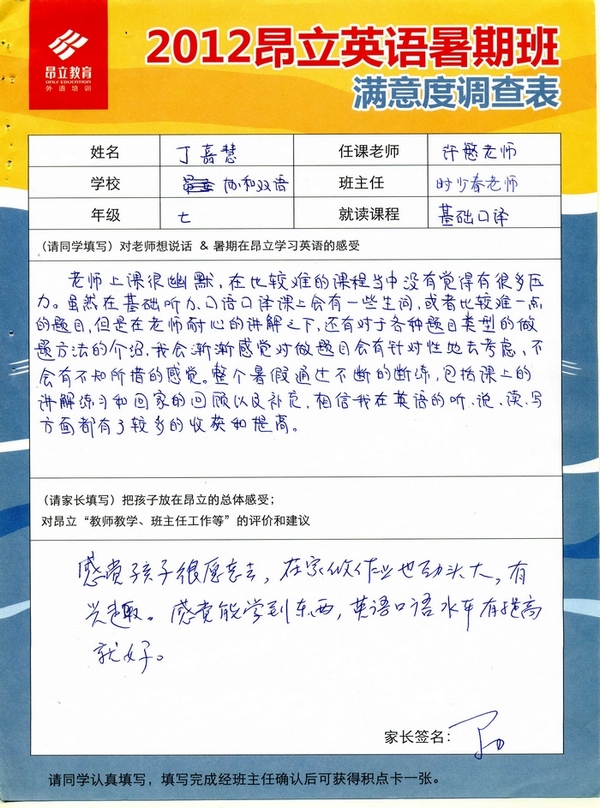 昂立教育
ONLY EDUCATION
外语培训
2012昂立英语暑期班
满意度调查表
姓名 丁喜慧 任课老师 许懋老师
学校 协和双语 班主任 时少春老师
年级 七 就读课程 基础口译
(请同学填写)对老师想说话 & 暑期在昂立学习英语的感受
老师上课很幽默,在比较难的课程当中没有觉得有很多压
力。虽然在基础听力、口语口译课上会有一些生词,或者比较难一点
的题目,但是在老师耐心的讲解之下,还有对于各种题目类型的做
题方法的介绍,我会渐渐感觉对做题目会有针对性地去考虑,不
会有不知所措的感觉。整个暑假通过不断的断练,包括课上的
讲解练习和回家的回顾以及补充,相信我在英语的听、说、读、写
方面都有了较多的收获和提高。
(请家长填写)把孩子放在昂立的总体感受;
对昂立“教师教学、班主任工作等”的评价和建议
感觉孩子很愿意去,在家做作业也劲头大,有
兴趣。感觉能学到东西,英语口语水平有提高
就好。
家长签名:
请同学认真填写,填写完成经班主任确认后可获得积点卡一张。